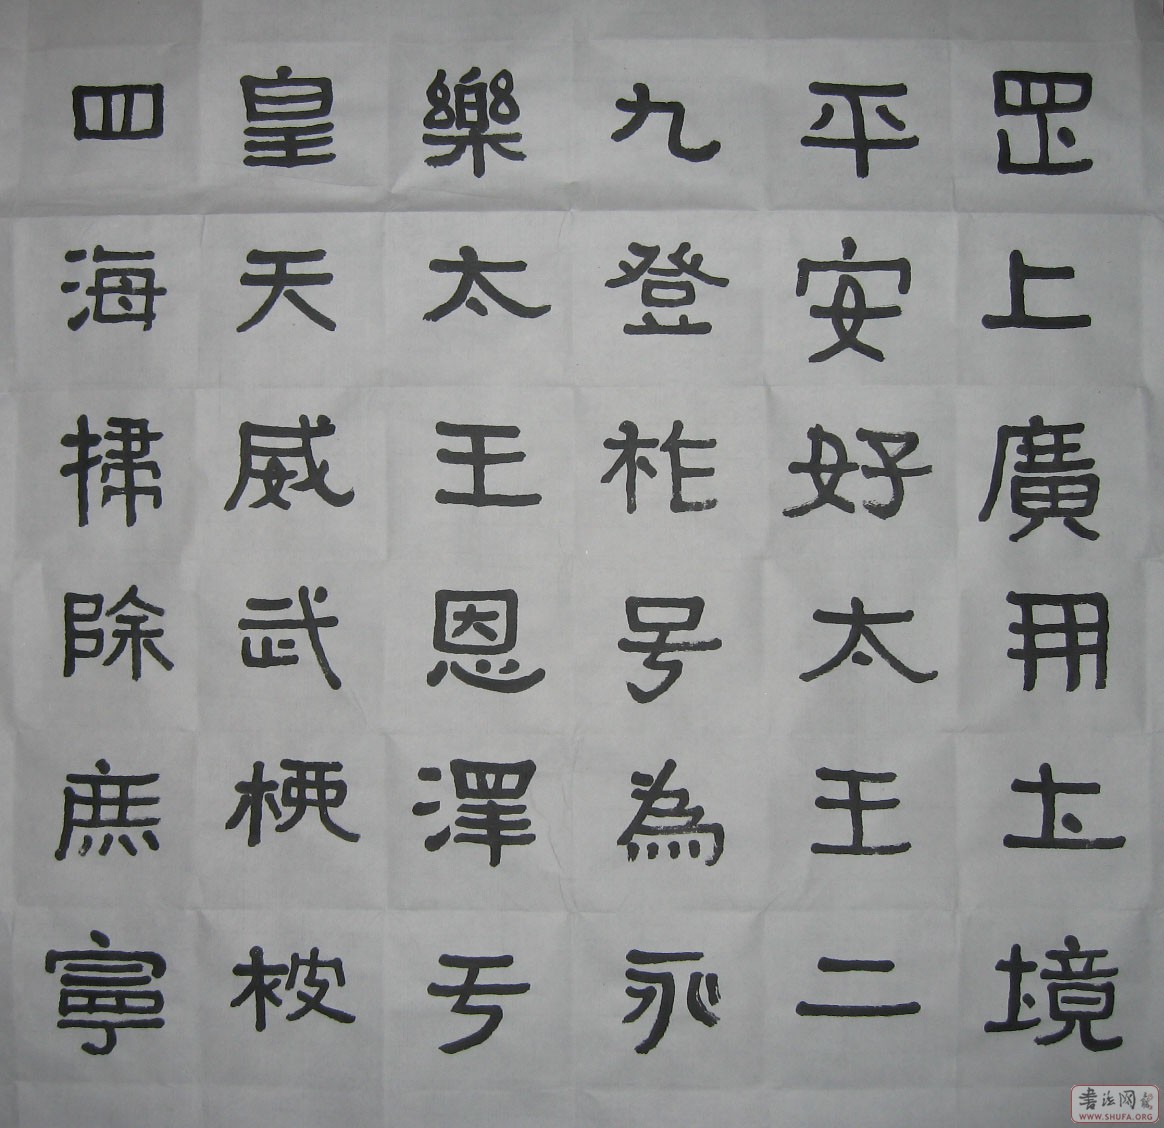 罡上廣開圡境
平安好太王二
九登祚号為永
樂太王恩澤于
皇天威武柳被
四海掃除庶寧
书法网
WWW.SHUFA.ORG